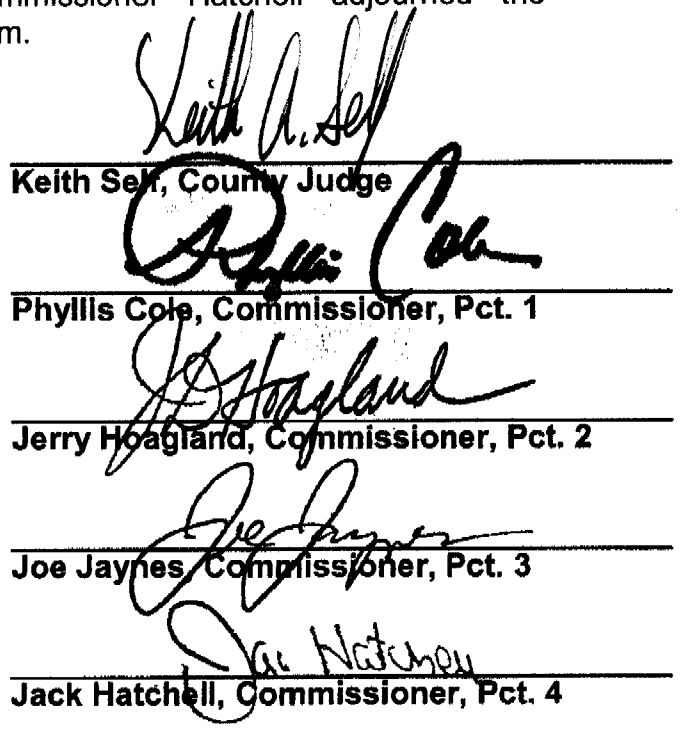 Commissioner Hatchell adjourned the
m.
Keith A. Self
Keith Self, County Judge
Phyllis Cole
Phyllis Cole, Commissioner, Pct. 1
JD Hoagland
Jerry Hoagland, Commissioner, Pct. 2
Joe Jaynes
Joe Jaynes, Commissioner, Pct. 3
Jack Hatchell
Jack Hatchell, Commissioner, Pct. 4